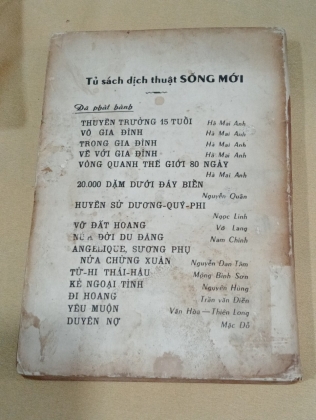 Tủ sách dịch thuật SỐNG MỚI
Đã phát hành
THUYỀN TRƯỞNG 15 TUỔI Hà Mai Anh
VÔ GIA ĐÌNH Hà Mai Anh
TRONG GIA ĐÌNH Hà Mai Anh
VỀ VỚI GIA ĐÌNH Hà Mai Anh
VÒNG QUANH THẾ GIỚI 80 NGÀY
Hà Mai Anh
20.000 DẶM DƯỚI ĐÁY BIỂN
Nguyễn Quân
HUYỀN SỬ DƯƠNG-QUÝ-PHI
Ngọc Linh
VỠ ĐẤT HOANG Vũ Lang
NỬA ĐỜI DU ĐÃNG Nam Chinh
ANGÉLIQUE, SƯƠNG PHỤ
NỬA CHỪNG XUÂN Nguyễn Đan Tâm
TỪ-HI THÁI-HẬU Mộng Bình Sơn
KẺ NGOẠI TÌNH Nguyên Hùng
ĐI HOANG Trần văn Điền
YÊU MUỘN Văn Hòa — Thiên Long
DUYÊN NỢ Mặc Đỗ